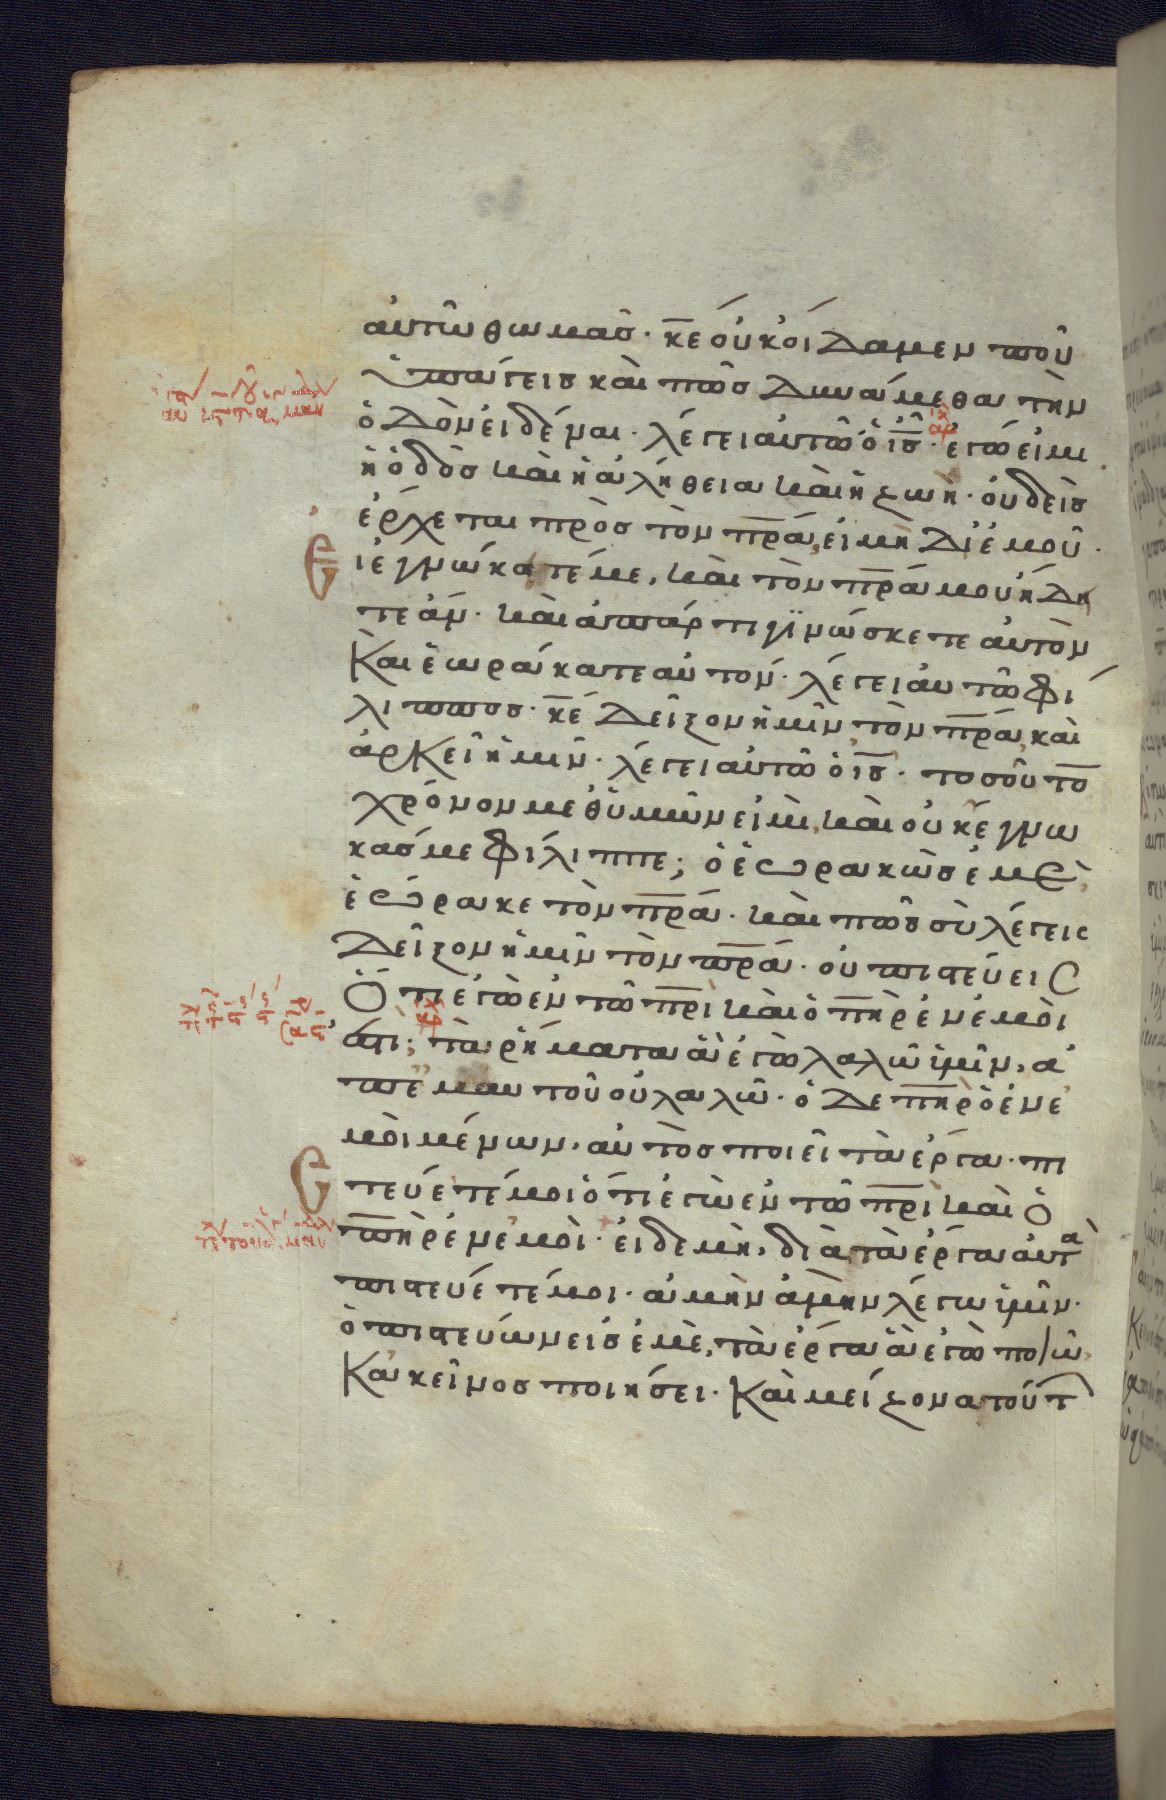 αὐτῶ θωμᾶσ · κ̅ε οὐκ οἴδαμεν ποῦ
ὑπάγεισ καὶ πῶσ δυνάμεθα τὴν
ὁδὸν εἰδέναι · λέγει αὐτῶ ὁ ι̅σ · ἐγώ εἰμι
ἡ ὁδὸσ καὶ ἡ ἀλήθεια καὶ ἡ ζωή · οὐδεὶσ
ἔρχεται πρὸσ τὸν π̅ρ̅α, εἰ μὴ δι' ἐμοῦ ·
Εἰ ἐγνώκατέ με, καὶ τὸν π̅ρ̅α μου ἤδη
τε ἄν · καὶ ἀπάρτι γϊνώσκετε αὐτὸν
Καὶ ἑωράκατε αὐτόν · λέγει αὐτῶ φί
λιπποσ · κ̅ε δεῖξον ἡμῖν τὸν π̅ρ̅α, καὶ
ἀρκεῖ ἡμῖν · λέγει αὐτῶ ὁ ι̅σ · τοσοῦτο̅
χρόνον μεθ' ὑμῶν εἰμὶ, καὶ οὐκ ἔγνω
κάσ με φίλιππε; ὁ ἑωρακὼσ ἐμὲ,
ἑώρακε τὸν π̅ρ̅α · καὶ πῶσ σὺ λέγεισ
δεῖξον ἡμῖν τὸν π̅ρ̅α · οὐ πιστεύεισ
Ὅτι ἐγὼ ἐν τῶ π̅ρ̅ι καὶ ὁ π̅η̅ρ ἐν ἐμοὶ
ἐστι; τὰ ῥήματα ἃ ἐγὼ λαλῶ ὑμῖν, ἀ
π' ἐμαυτοῦ οὐ λαλῶ · ὁ δὲ π̅η̅ρ ὁ ἐν ἐ
μοὶ μένων, αὐτὸσ ποιεῖ τὰ ἔργα · πι
στεύετέ μοι ὅτι ἐγὼ ἐν τῶ π̅ρ̅ι καὶ ὁ
π̅η̅ρ ἐν ἐμοὶ · εἰ δὲ μὴ, διὰ τὰ ἔργα αὐτὰ
πιστεύετέ μοι · ἀμὴν ἀμὴν λέγω ὑμῖν ·
ὁ πιστεύων εἰσ ἐμὲ, τὰ ἔργα ἃ ἐγὼ ποιῶ,
Κἀκεῖνοσ ποιήσει · καὶ μείζονα τούτ